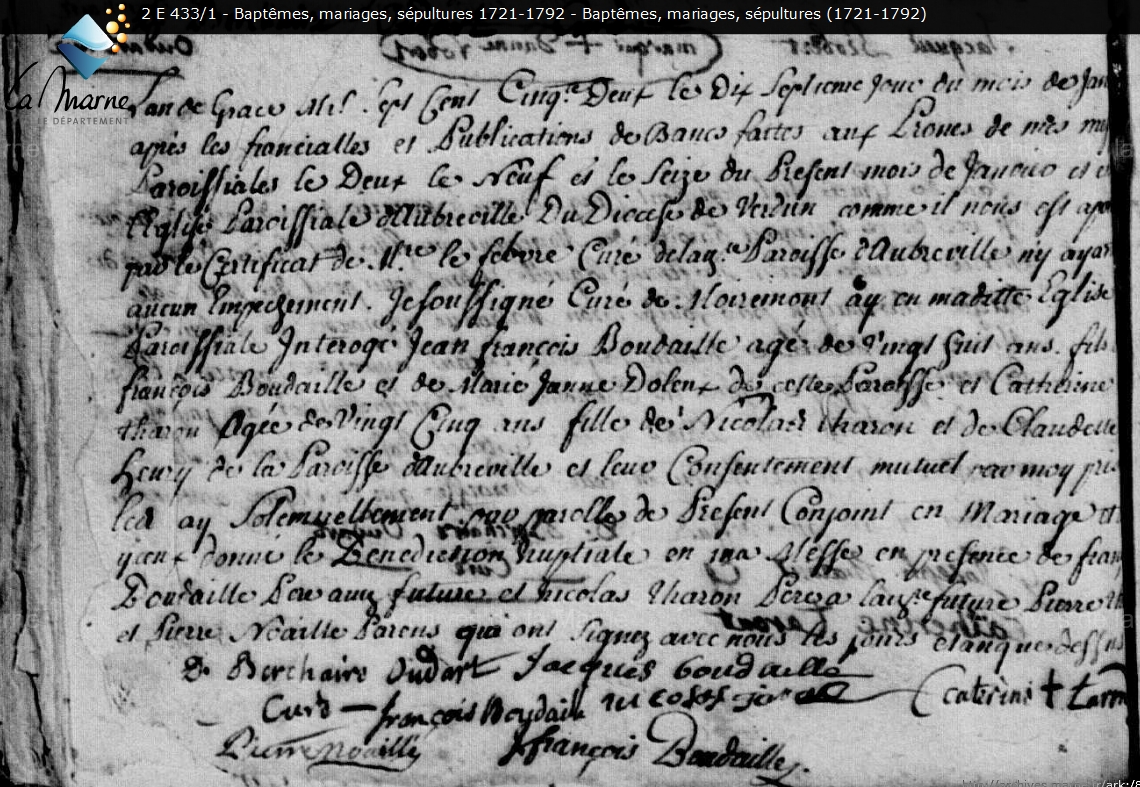 2 E 433/1 - Baptêmes, mariages, sépultures 1721-1792 - Baptêmes, mariages, sépultures (1721-1792)
La Marne
LE DÉPARTEMENT
Lan de Grace Mil Sept Cent Cinq.te Deux le Dix Septieme Jour du mois de Jan
aprés les fiancialles et Publications de Bancs faites aux Prones de mes
Paroissiales le Deux le Neuf et le Seize du Present mois de Janvier et
l'Eglise Paroissiale dAubreville Du Diocese de Verdun comme il nous est
par le Certificat de M.re le febvre Curé de la Paroisse d'Aubreville n'y ayan
aucun Empechement. Je soussigné Curé de Moiremont ay en maditte Eglise
Paroissiale Interogé Jean françois Boudaille agé de Vingt huit ans. fils
françois Boudaille et de Marie Janne Dolent de cette Paroisse et Catherine
tharon Agée de Vingt Cinq ans fille de Nicolas tharon et de Claudette
henry de la Paroisse dAubreville et leur Consentement mutuel par moy pris
les ay Solemnellement par parolle de Present Conjoint en Mariage et
donné le Benediction Nuptiale en ma Messe en presence de fran
Boudaille Pere au futur et Nicolas tharon Pere a future Pierre
et Pierre Noaille Parens qui ont signez avec nous les jours et an que dessus
D. Berchaire Oudart Jacques boudaille
Curé françois Boudaill caterine + taron
Pierre noaille J françois Boudaille